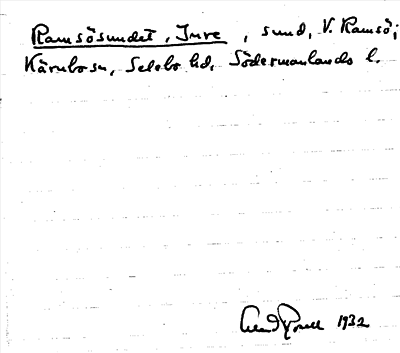 Ramsösundet, Inre, sund, V. Ramsö;
Kärnbo sn, Selebo hd, Södermanlands l.
1932